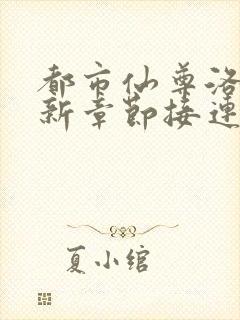 都市仙尊洛
新章节接连
夏小绾